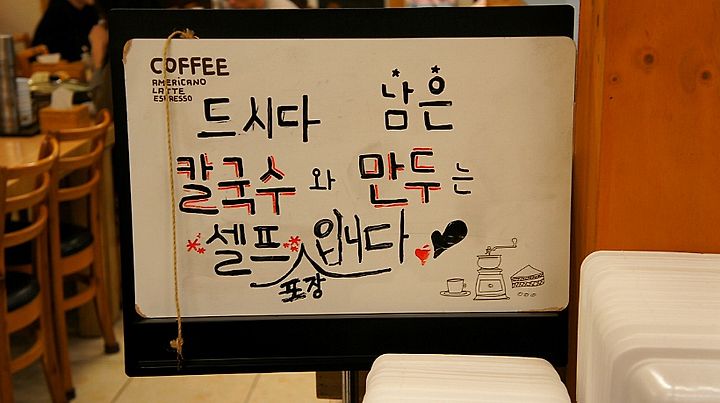 COFFEE
AMERICANO
LATTE
ESPRESSO
드시다 남은
칼국수와 만두는
셀프 포장 입니다